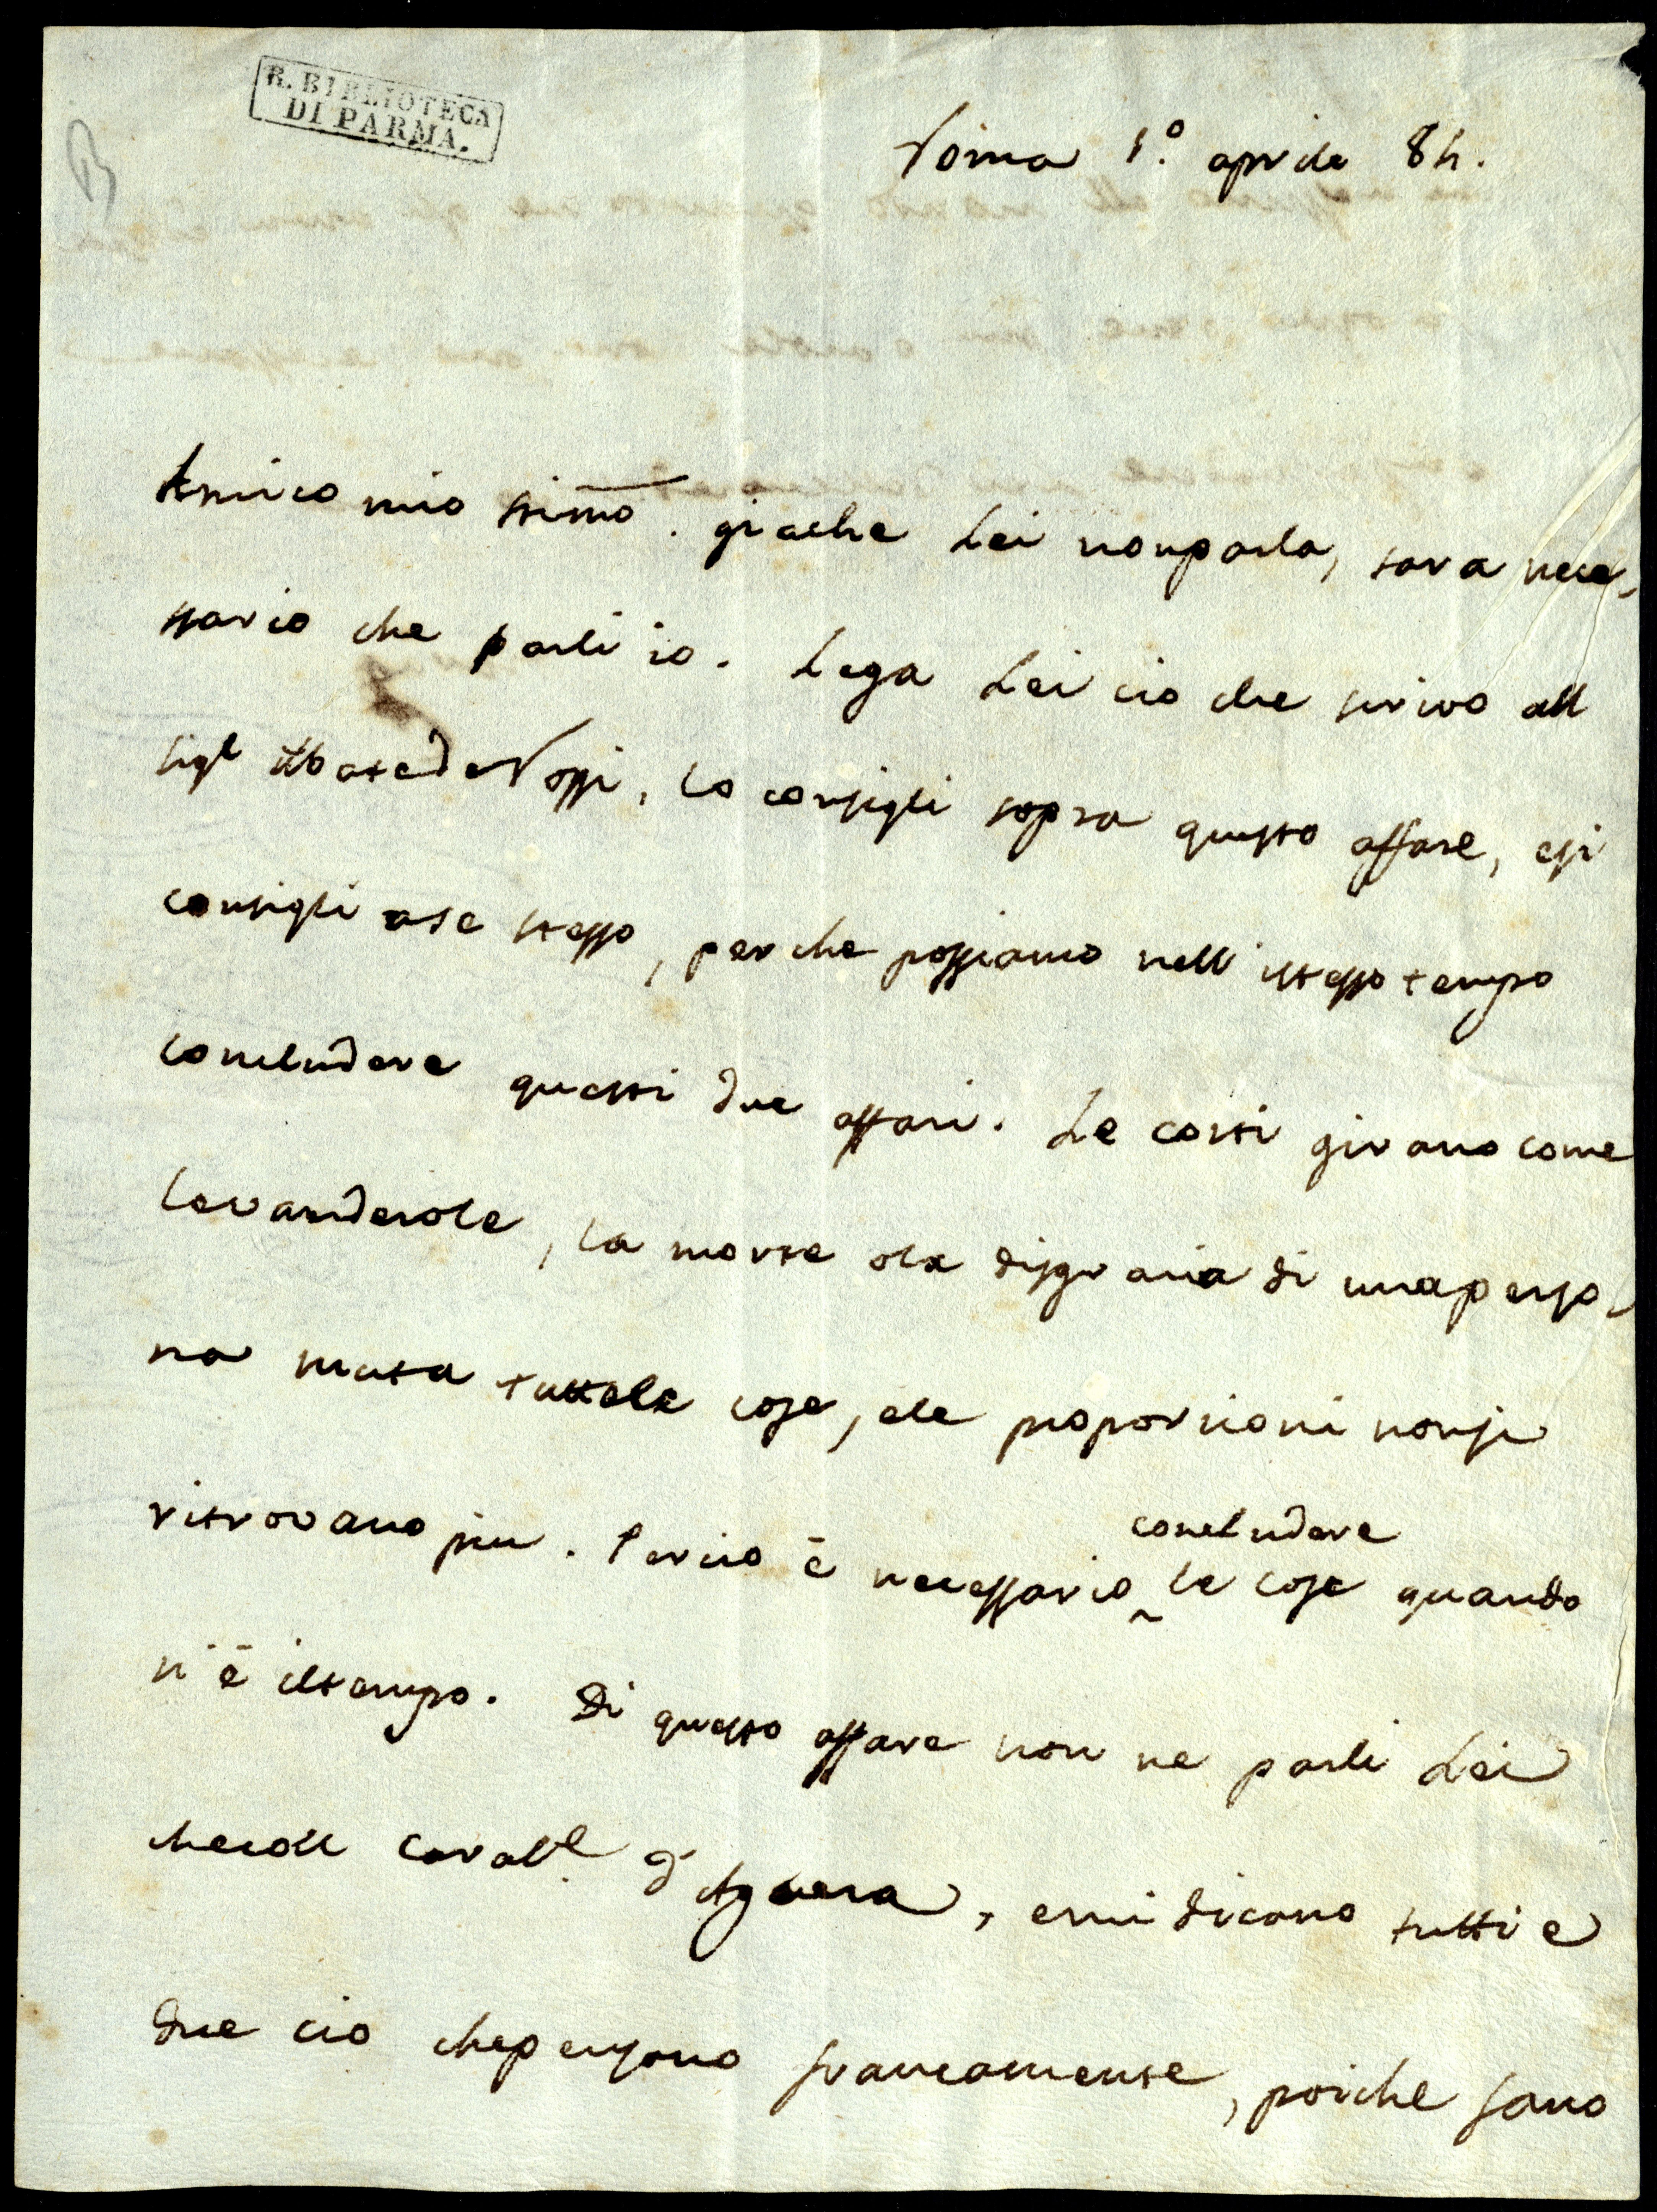 R. BIBLIOTECA
DI PARMA.
Roma 1.º aprile 84.
Amico mio stimo. giache Lei nonparla, sara nece-
ssario che parli io. Lega Lei cio che scrivo all
sigr Abate de Rossi, lo consigli sopra questo affare, esi
consigli ase stesso, perche possiamo nell istesso tempo
concludere questi due affari. Le corti girano come
levanderole, la morte ola disgrazia di unaperso-
na muta tuttele cose, ele proporzioni nonsi
ritrovano piu. Percio è necessario concludere le cose quando
n'è iltempo. Di questo affare non ne parli Lei
checoll Cavallr. d'Aguera, emi dicano tutti e
due cio chepensano francamente, poiche sano